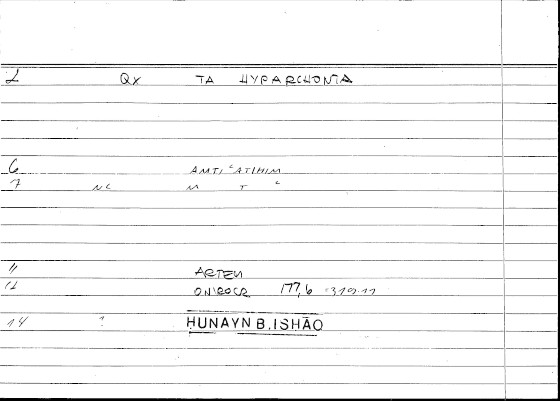 2 Qx TA HYPARCHONTA
6 AMTIʿATIHIM
7 NC M T ʿ
11 ARTEM
12 ONIROCR 177,6 319.11
14 HUNAYN B. ISHĀQ